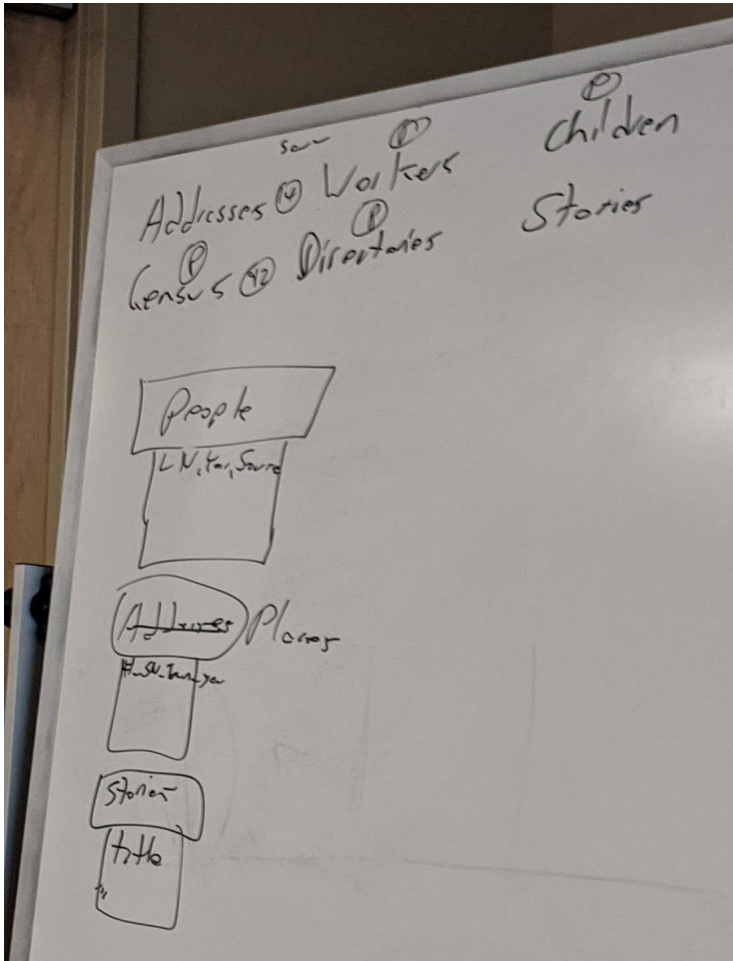 Addresses Workers Children
Census 42 Directories Stories
People
LN, Year, Source
Addresses Places
#_SN_Town_year
Stories
title